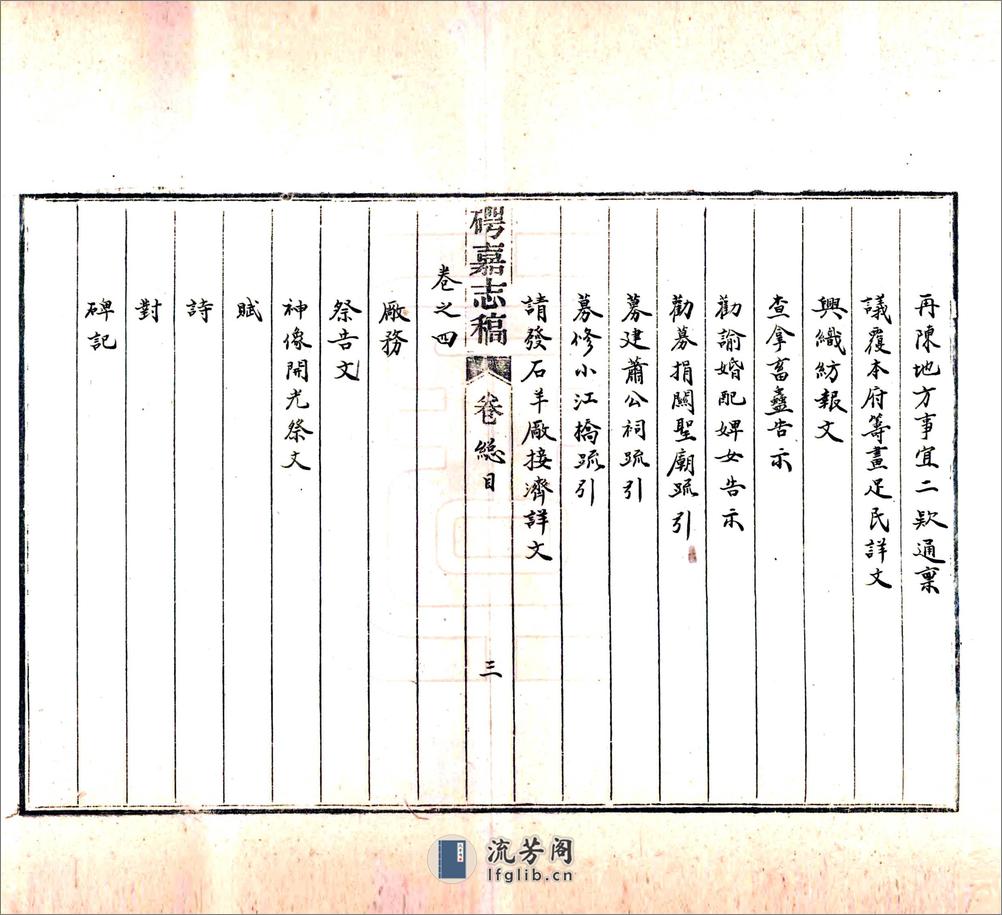 再陳地方事宜二欵通稟
議覆本府筹畫足民詳文
興織紡報文
查拿畜蠱告示
勸諭婚配婢女告示
勸募捐關聖廟疏引
募建蕭公祠疏引
募修小江橋疏引
請發石羊廠接濟詳文
碍嘉志稿 卷總目 三
卷之四
廠務
祭告文
神像開光祭文
賦
詩
對
碑記
流芳阁
lfglib.cn